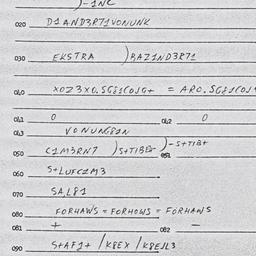 )-INC
020 D1AND3R71VONUNK
030 EKSTRA )BAZ1ND3R71
040 XOZ3XO.SG81COJG+ = ARO.SG81COJ+
041 0 042 0
043 VONUNG82N
050 C1M3RN7 )S+TIBE+ 051 )-S+TIB+
060 S+LUFC1M3
070 SA,L81
080 FORHAWS = FORHOWS = FORHANS
081 + 082 -
090 S+AF1+ /K8EX /K8EJL3